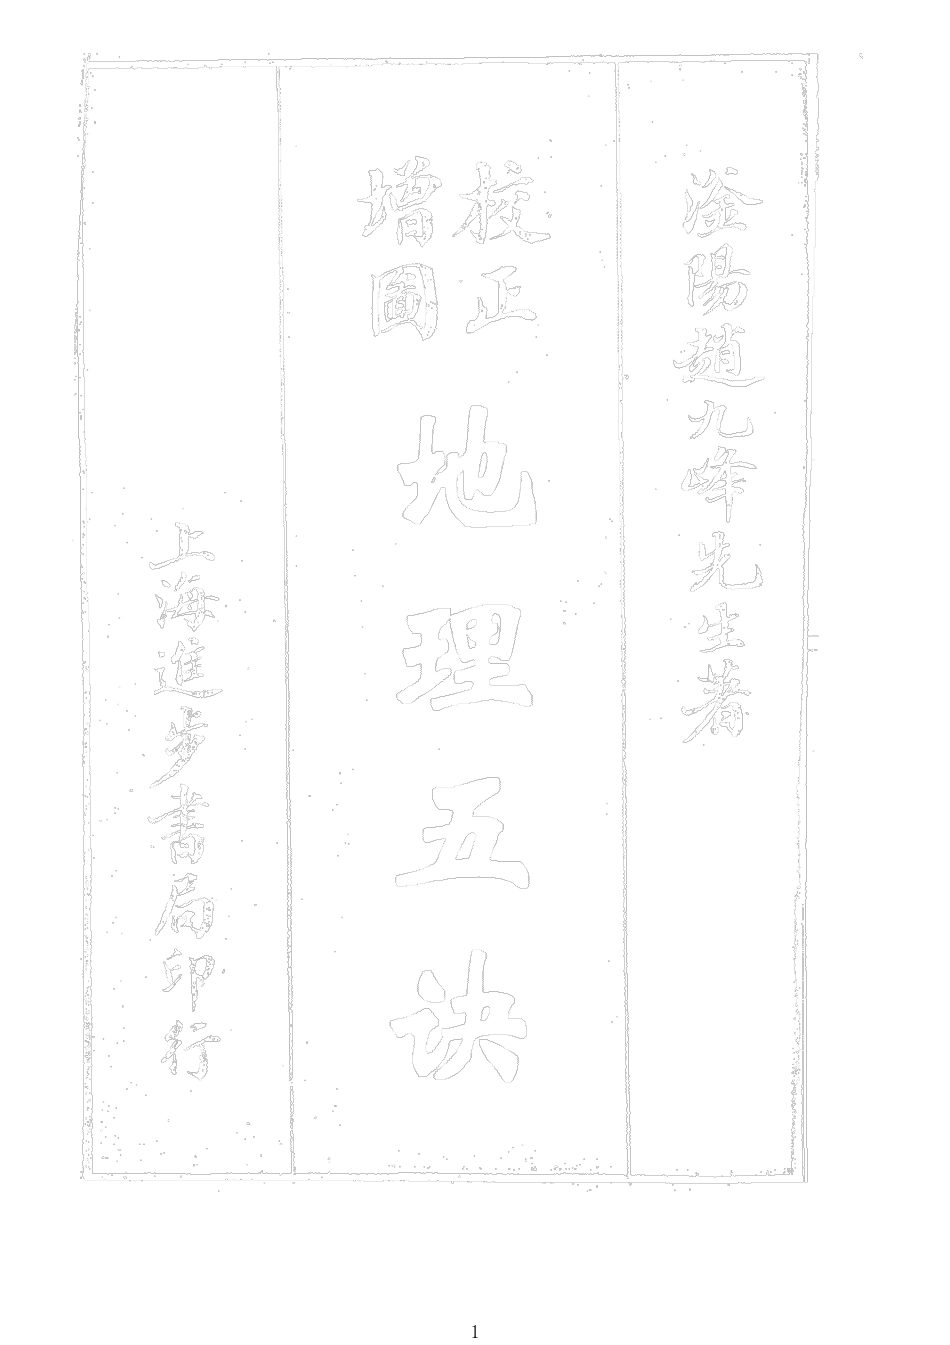 滏陽趙九峰先生著
校正
增圖
地理五诀
上海進步書局印行
1